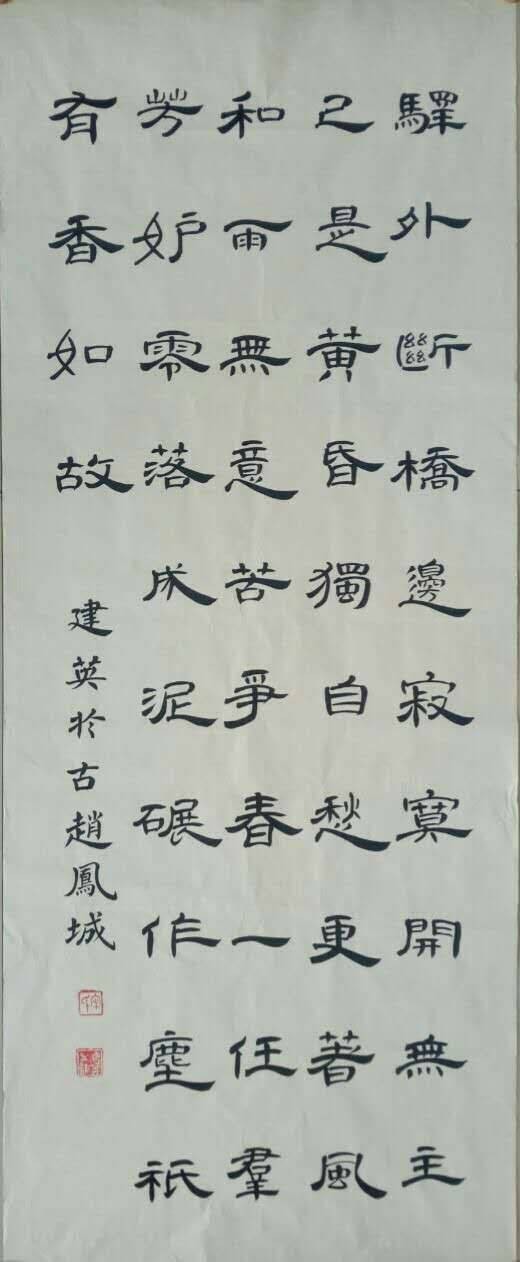 驛外斷橋邊寂寞開無主
已是黃昏獨自愁更著風
和雨無意苦爭春一任羣
芳妒零落成泥碾作塵祇
有香如故
建英於古趙鳳城